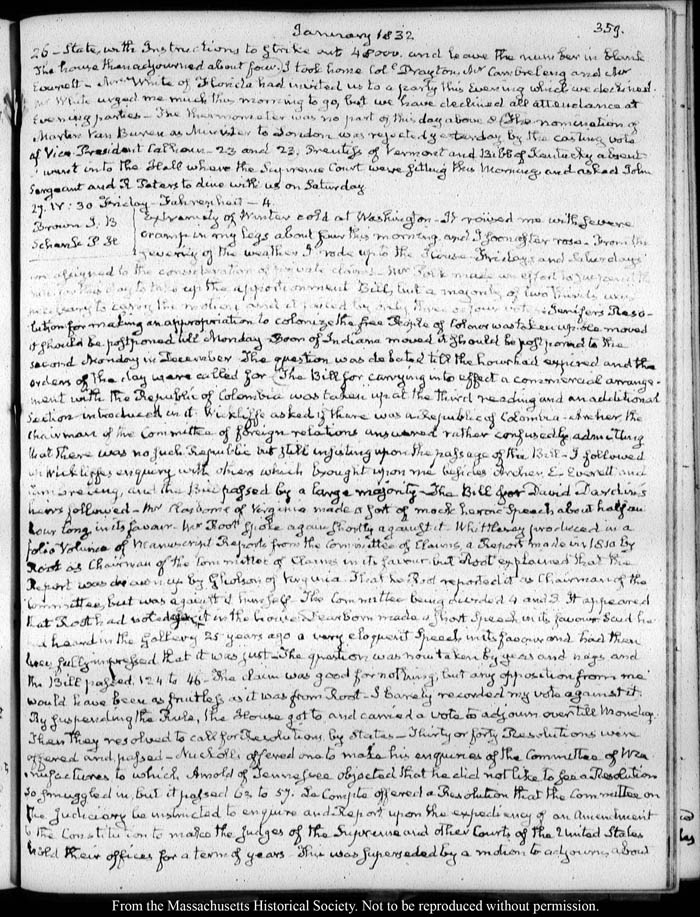 January 1832
359.
26 - State, with Instructions to strike out 48000. and leave the number in blank
The house then adjourned about four. I took home Col.l Drayton, Mr Cambreleng and Mr
Everett - Mrs White of Florida had invited us to a party this Evening which we declined.
Mr White urged me much this morning to go, but we have declined all attendance at
Evening parties - The thermometer was no part of this day above 8 (The nomination of
Martin Van Buren as Minister to London was rejected yesterday by the casting vote
of Vice-President Calhoun - 23 and 23, Prentiss of Vermont and Bibb of Kentucky absent
I went into the Hall where the Supreme Court were sitting this Morning and asked John
Sergeant and R. Peters to dine with us on Saturday
27. IV: 30 Friday - Fahrenheit - 4.
Brown J. B
Schenck
Extremity of Winter cold at Washington - It roused me with severe
cramp in my legs about four this morning, and I soon after rose - From the
severity of the weather I rode up to the House - Fridays and Saturdays
are assigned to the consideration of private claims - Mr Polk made an effort to suspend the
rule for this day to take up the apportionment Bill, but a majority of two thirds were
necessary to carry the motion, and it failed by only three or four votes - Jenifers Reso-
lution for making an appropriation to colonize the free People of Colour was taken up. He moved
it should be postponed till Monday - Boon of Indiana moved it should be postponed to the
second Monday in December The question was debated till the hour had expired and the
orders of the day were called for (The Bill for carrying into effect a commercial arrange-
ment with the Republic of Colombia was taken up at the third reading and an additional
Section introduced in it. Wickliffe asked if there was a Republic of Colombia - Archer the
Chairman of the Committee of foreign relations answered rather confusedly admitting
that there was no such Republic but still insisting upon the passage of the Bill - I followed
up Wickliffes enquiry with others which brought upon me besides Archer, E. Everett and
Cambreleng, and the Bill passed by a large majority - The Bill for David Dardins
heirs followed - Mr Claiborne of Virginia made a sort of mock heroic Speech about half an
hour long, in its favour - Mr Root spoke again shortly against it. Whittlesey produced in a
folio Volume of Manuscript Reports from the Committee of Claims, a Report made in 1810 by
Root as Chairman of the Committee of Claims in its favour but Root explained that the
Report was drawn up by Gholson of Virginia. That he Root reported it as Chairman of the
Committee, but was against it himself. The Committee being divided 4 and 3. It appeared
that Root had voted against it in the house. Dearborn made a short Speech in its favour. Said he
had heard in the Gallery 25 years ago a very eloquent Speech in its favour and had then
been fully impressed that it was just - The question was now taken by yeas and nays and
the Bill passed 124 to 46 - The claim was good for nothing, but any opposition from me
would have been as fruitless as it was from Root - I barely recorded my vote against it.
By suspending the Rule, the House got to and carried a vote to adjourn over till Monday.
Then they resolved to call for Resolutions by States - Thirty or forty Resolutions were
offered and passed - Nuckolls offered one to make his enquiries of the Committee of Ma-
nufactures to which Arnold of Tennessee objected that he did not like to see a Resolution
so smuggled in, but it passed 62 to 57. Le Compte offered a Resolution that the Committee on
the Judiciary be instructed to enquire and Report upon the expediency of an Amendment
to the Constitution to make the Judges of the Supreme and other Courts of the United States
hold their offices for a term of years - This was superseded by a motion to adjourn, about
From the Massachusetts Historical Society. Not to be reproduced without permission.